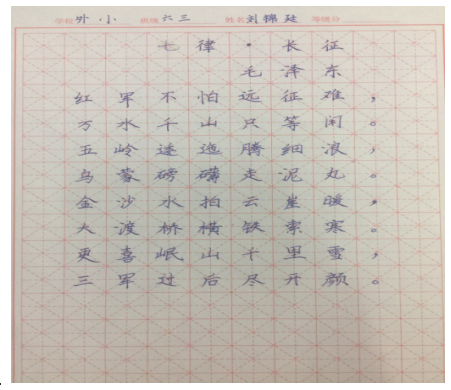 学校外·小 班级六三 姓名刘锦廷 等级分
七律·长征
毛泽东
红军不怕远征难,
万水千山只等闲。
五岭逶迤腾细浪,
乌蒙磅礴走泥丸。
金沙水拍云崖暖,
大渡桥横铁索寒。
更喜岷山千里雪,
三军过后尽开颜。